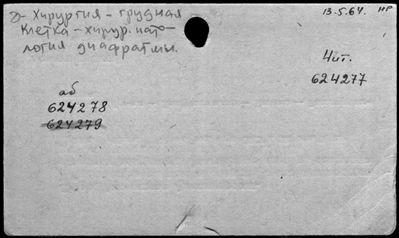 Д- Хирургия - грудная
клетка - хирур. пато-
логия диафрагмы.
13.5.64. НР
Чит.
624277
аб
624278
624279